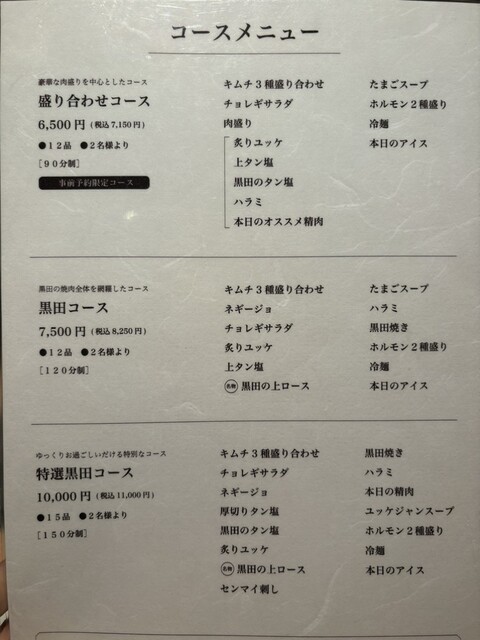 コースメニュー
豪華な肉盛りを中心としたコース
盛り合わせコース
6,500円（税込7,150円）
●12品　●2名様より
［90分制］
事前予約限定コース
キムチ3種盛り合わせ
チョレギサラダ
肉盛り
炙りユッケ
上タン塩
黒田のタン塩
ハラミ
本日のオススメ精肉
たまごスープ
ホルモン2種盛り
冷麺
本日のアイス
黒田の焼肉全体を網羅したコース
黒田コース
7,500円（税込8,250円）
●12品　●2名様より
［120分制］
キムチ3種盛り合わせ
ネギージョ
チョレギサラダ
炙りユッケ
上タン塩
名物 黒田の上ロース
たまごスープ
ハラミ
黒田焼き
ホルモン2種盛り
冷麺
本日のアイス
ゆっくりお過ごしいだける特別なコース
特選黒田コース
10,000円（税込11,000円）
●15品　●2名様より
［150分制］
キムチ3種盛り合わせ
チョレギサラダ
ネギージョ
厚切りタン塩
黒田のタン塩
炙りユッケ
名物 黒田の上ロース
センマイ刺し
黒田焼き
ハラミ
本日の精肉
ユッケジャンスープ
ホルモン2種盛り
冷麺
本日のアイス